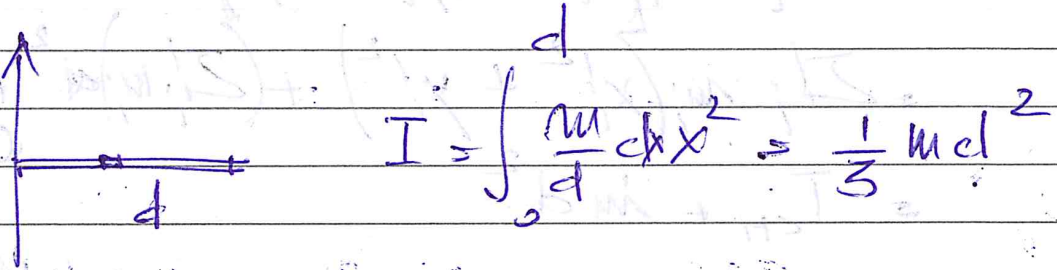 d
I = ∫₀ᵈ m/d dx x² = 1/3 md²